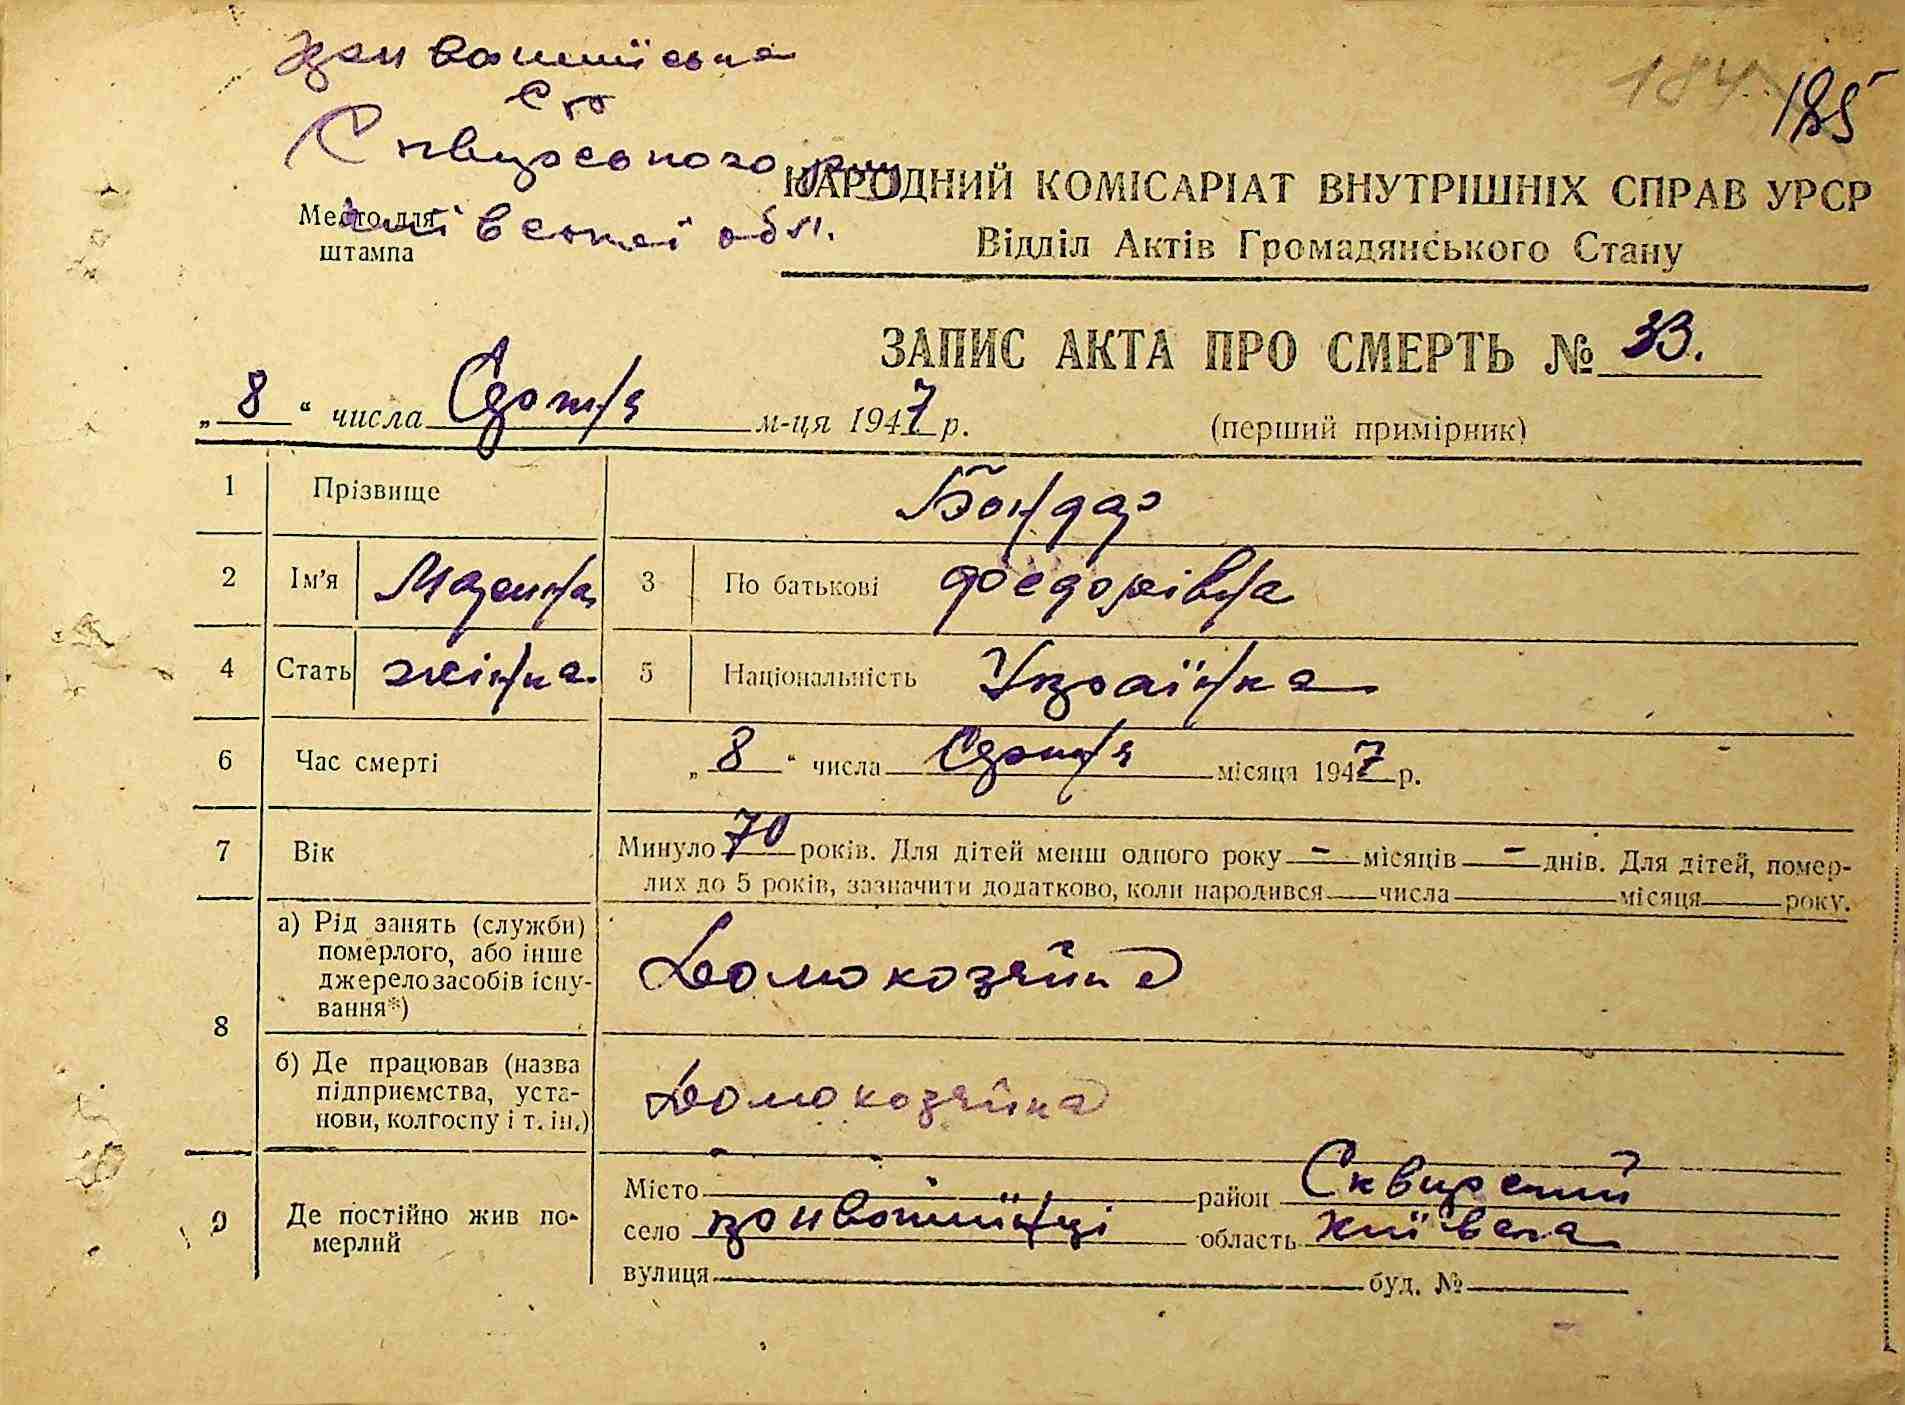 с/р
Сквирського р-ну
184. 185
Київської обл.
Место для
штампа
НАРОДНИЙ КОМІСАРІАТ ВНУТРІШНІХ СПРАВ УРСР
Відділ Актів Громадянського Стану
ЗАПИС АКТА ПРО СМЕРТЬ № 33.
„8“ числа Сротня м-ця 1947 р.
(перший примірник)
1 Прізвище Бондар
2 Ім'я Марина 3 По батькові Федорівна
4 Стать жінка. 5 Національність Українка
6 Час смерті „8“ числа Сротня місяця 1947 р.
7 Вік Минуло 70 років. Для дітей менш одного року - місяців - днів. Для дітей, помер-
лих до 5 років, зазначити додатково, коли народився числа місяця року.
8 а) Рід занять (служби)
померлого, або інше
джерело засобів існу-
вання*)
Домохозяйка
б) Де працював (назва
підприємства, уста-
нови, колгоспу і т. ін.)
Домохозяйка
9 Де постійно жив по-
мерлий
Місто район Сквирский
село область Київска
вулиця буд. №